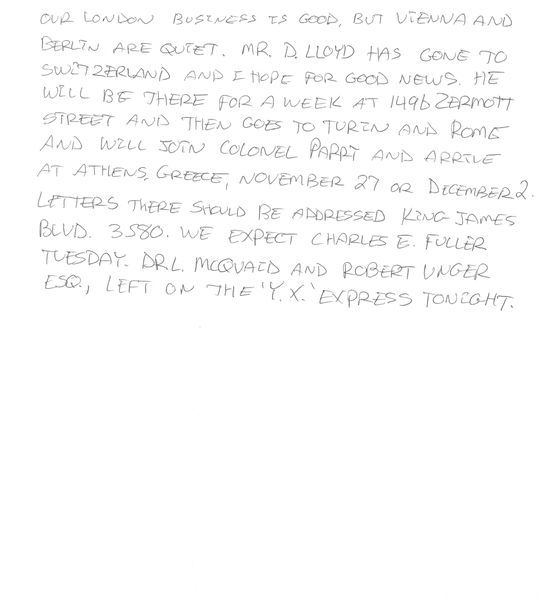 OUR LONDON BUSINESS IS GOOD, BUT VIENNA AND
BERLIN ARE QUIET. MR. D. LLOYD HAS GONE TO
SWITZERLAND AND I HOPE FOR GOOD NEWS. HE
WILL BE THERE FOR A WEEK AT 1496 ZERMOTT
STREET AND THEN GOES TO TURIN AND ROME
AND WILL JOIN COLONEL PARRI AND ARRIVE
AT ATHENS, GREECE, NOVEMBER 27 OR DECEMBER 2.
LETTERS THERE SHOULD BE ADDRESSED KING JAMES
BLVD. 3580. WE EXPECT CHARLES E. FULLER
TUESDAY. DR L. MCQUAID AND ROBERT UNGER
ESQ., LEFT ON THE 'Y. X.' EXPRESS TONIGHT.